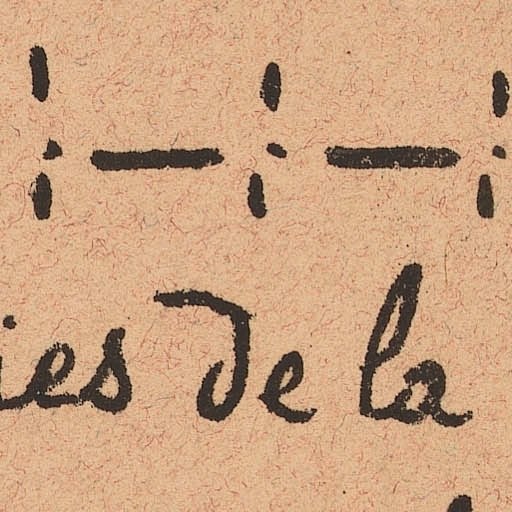 ies de la